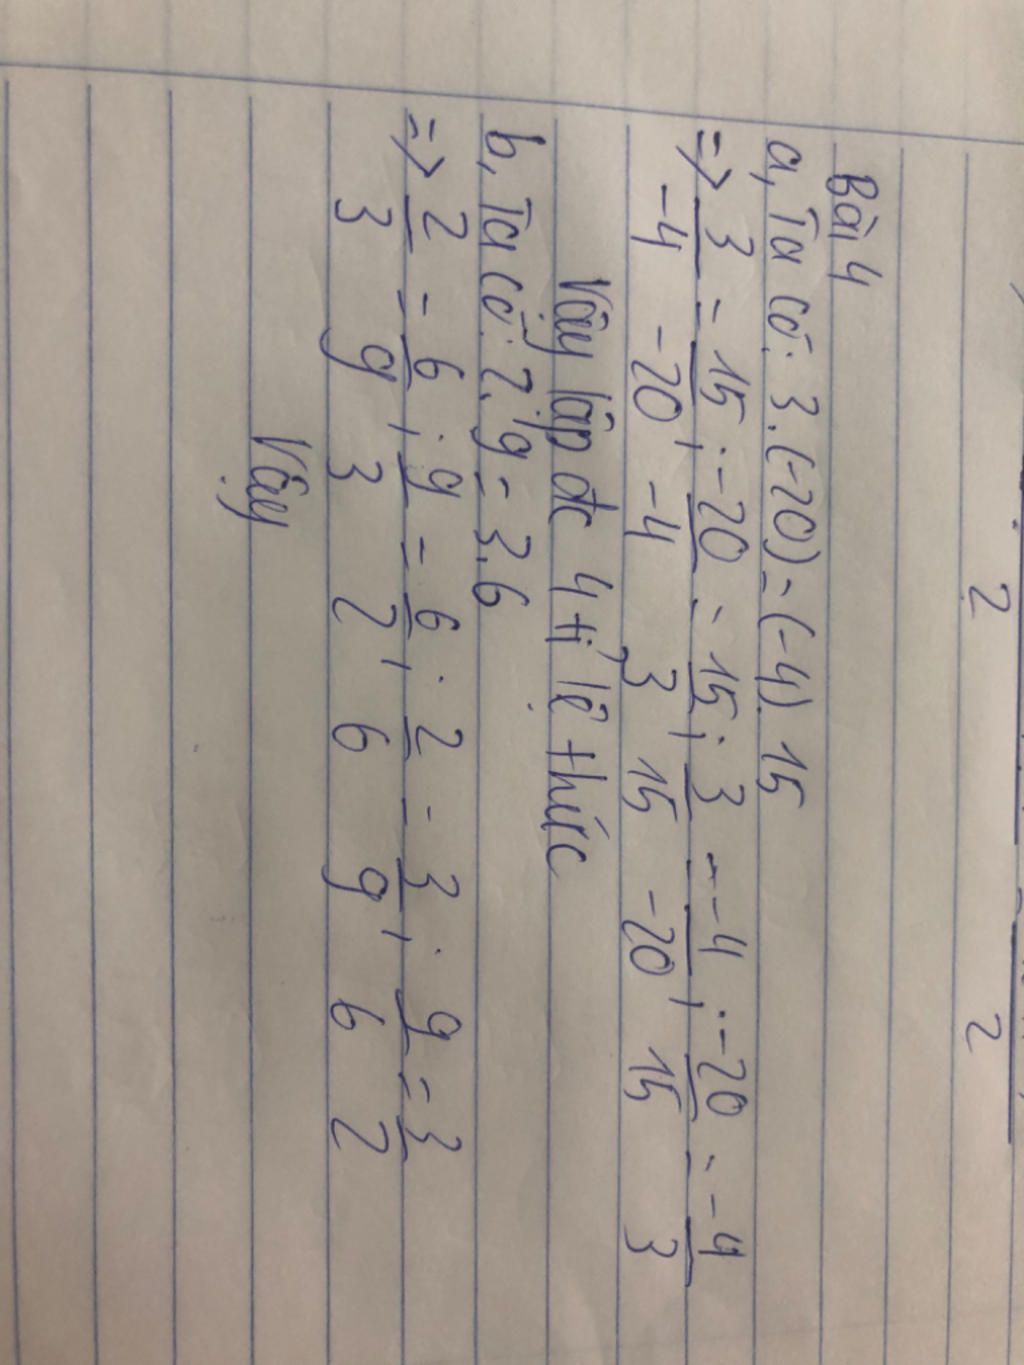 2 2
Bài 4
a, Ta có: 3.(-20) = (-4).15
=> 3/-4 = 15/-20; -20/-4 = 15/3; 3/15 = -4/-20; -20/15 = -4/3
Vậy lập đc 4 tỉ lệ thức
b, Ta có: 2.9 = 3.6
=> 2/3 = 6/9; 9/3 = 6/2; 2/6 = 3/9; 9/6 = 3/2
Vậy